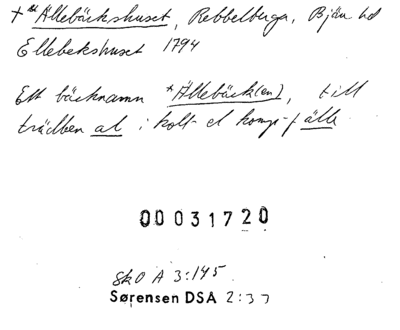 + Ällebäckshuset, Rebbelberga, Bjäre hd
Ellebekshuset 1794
Ett bäcknamn *Ällebäck(en), till
trädben. al i koll- el komp-f älle
00031720
SkO A 3:145
Sørensen DSA 2:37